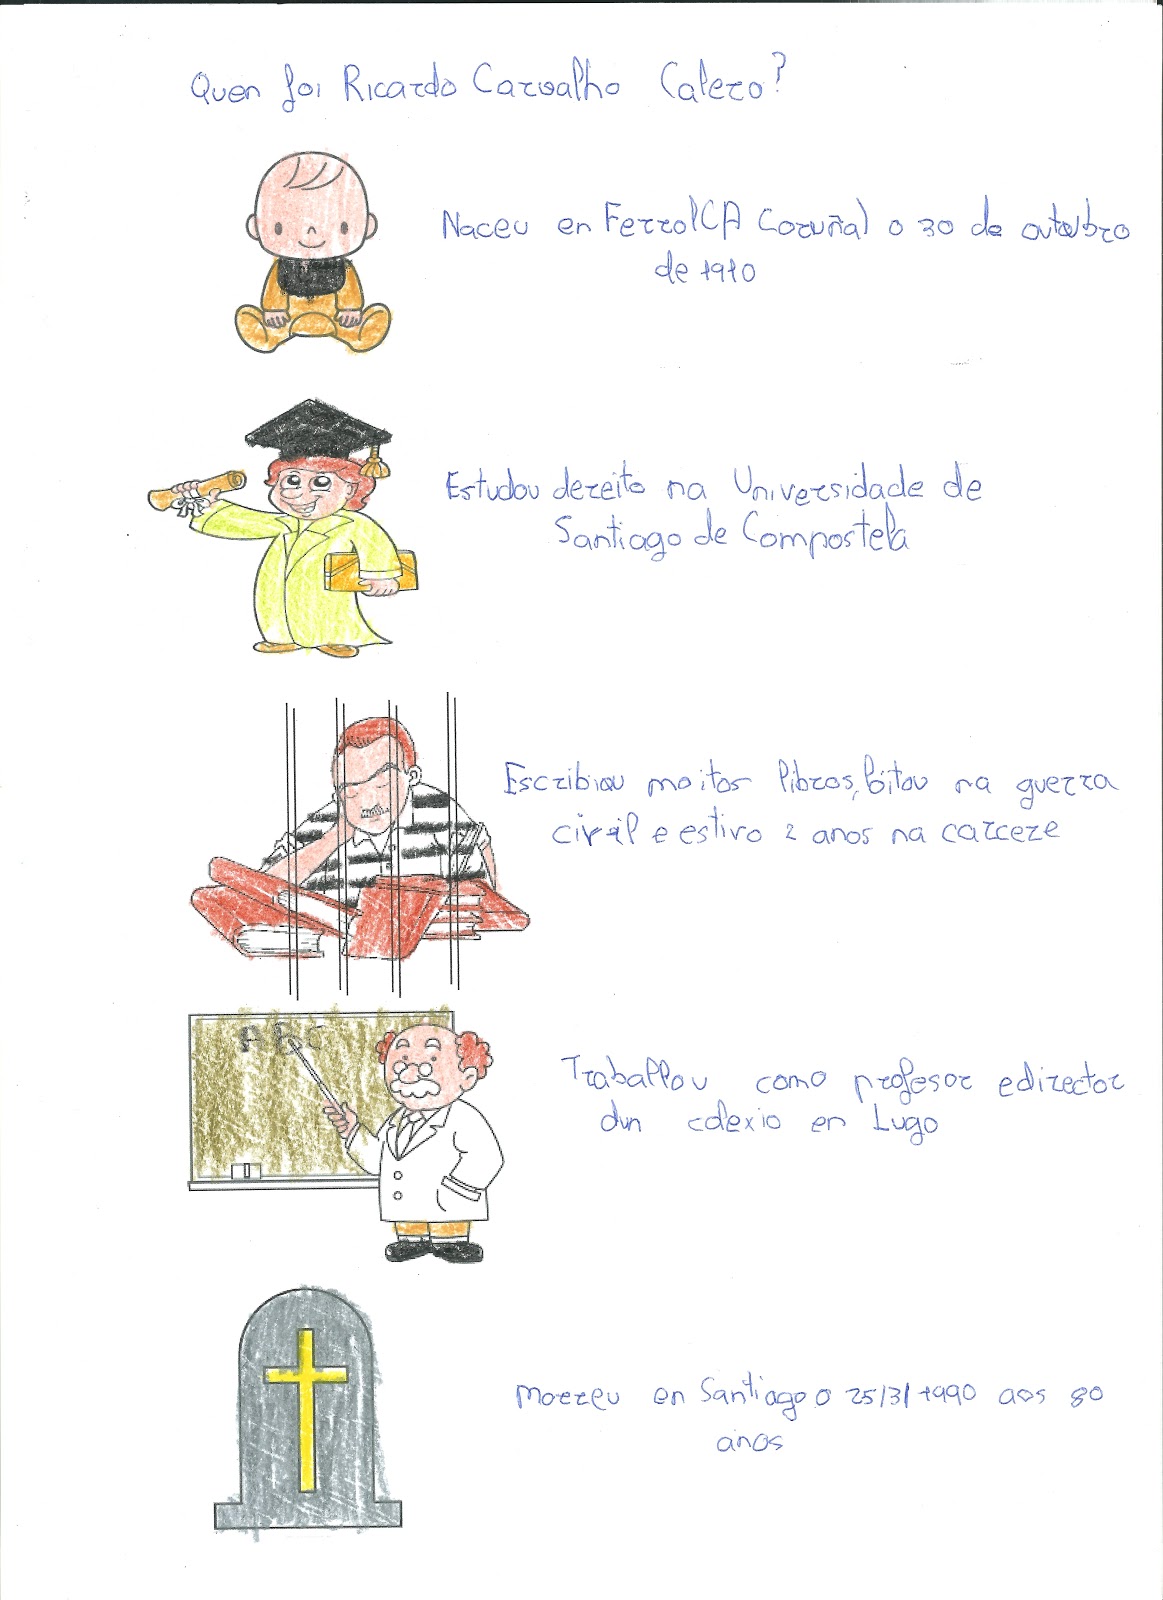 Quen foi Ricardo Carvalho Calero?
Naceu en Ferrol(A Coruña) o 30 de outubro
de 1910
Estudou dereito na Universidade de
Santiago de Compostela
Escribiou moitos libros, loitou na guerra
civil e estivo 2 anos na carcere
ABC
Traballou como profesor e director
dun colexio en Lugo
Morreu en Santiago o 25/3/1990 aos 80
anos